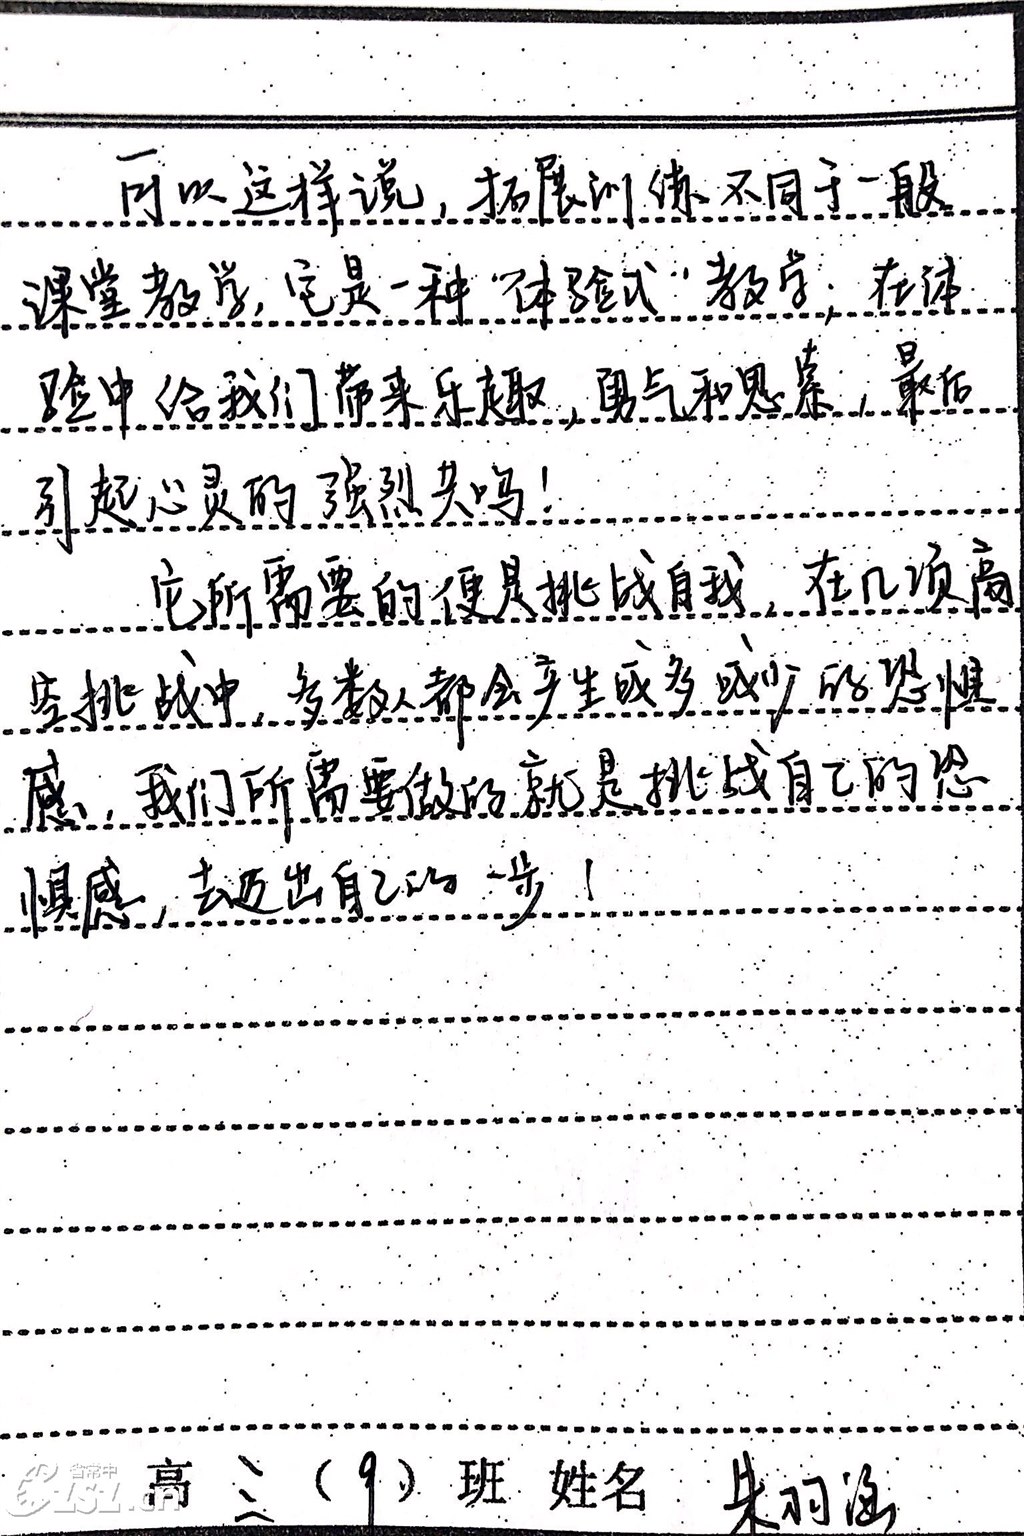 可以这样说，拓展训练不同于一般
课堂教学，它是一种“体验式”教学，在体
验中给我们带来乐趣，勇气和思索，最后
引起心灵的强烈共鸣！
它所需要的便是挑战自我，在几项高
空挑战中，多数人都会产生或多或少的恐惧
感，我们所需要做的就是挑战自己的恐
惧感，去迈出自己的一步！
高三（9）班 姓名 朱羽涵
省常中